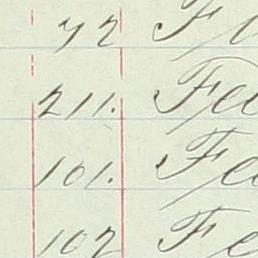 72 F
211. Fe
101. Fe
102 Fe